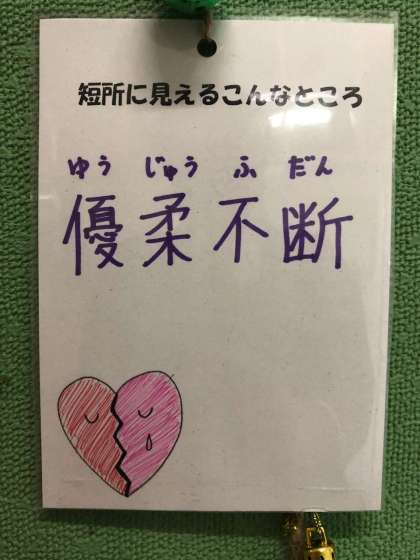 短所に見えるこんなところ
ゆう じゅう ふ だん
優柔不断